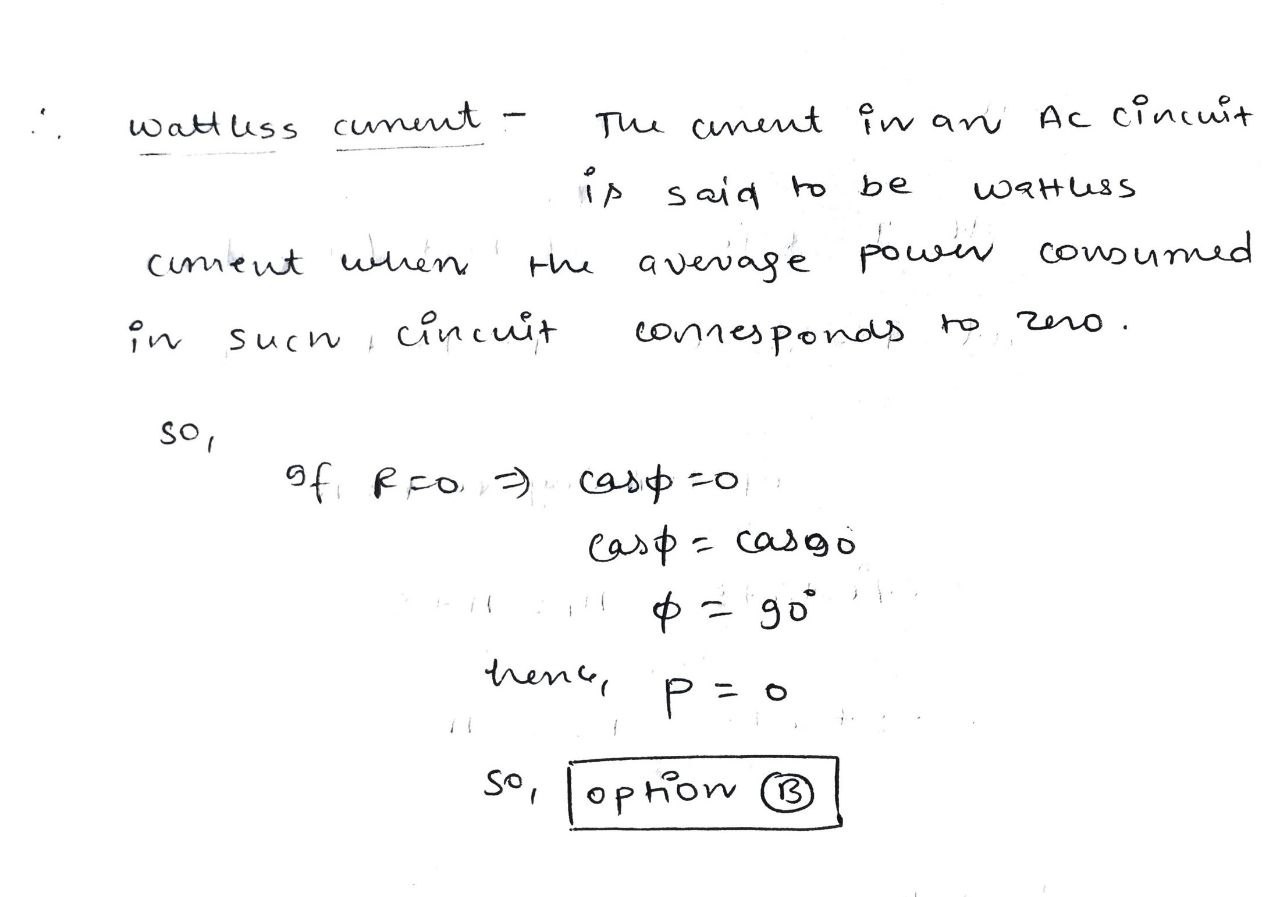 ∴ wattless current - The current in an AC circuit
is said to be wattless
current when the average power consumed
in such circuit corresponds to zero.
so,
If R=0 ⇒ cosϕ=0
cosϕ = cos90
ϕ = 90°
hence, P = 0
so, option (B)